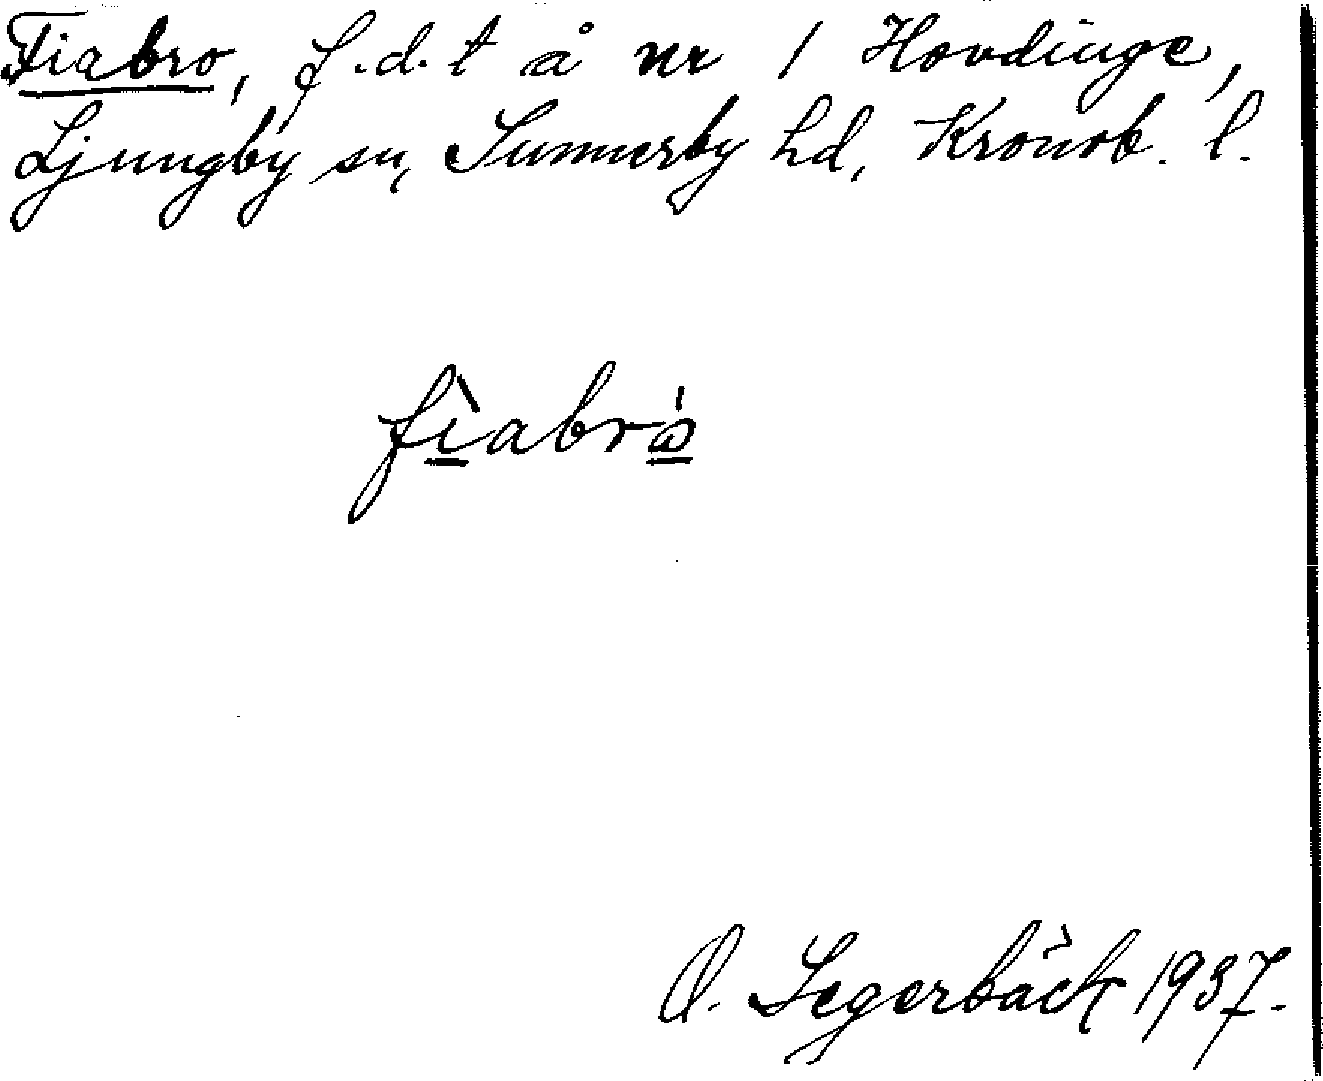 Fiabro, f.d.t å nr 1 Hovdinge,
Ljungby sn, Sunnerby hd, Kronob. l.
fìabró
O. Segerbäck 1937.